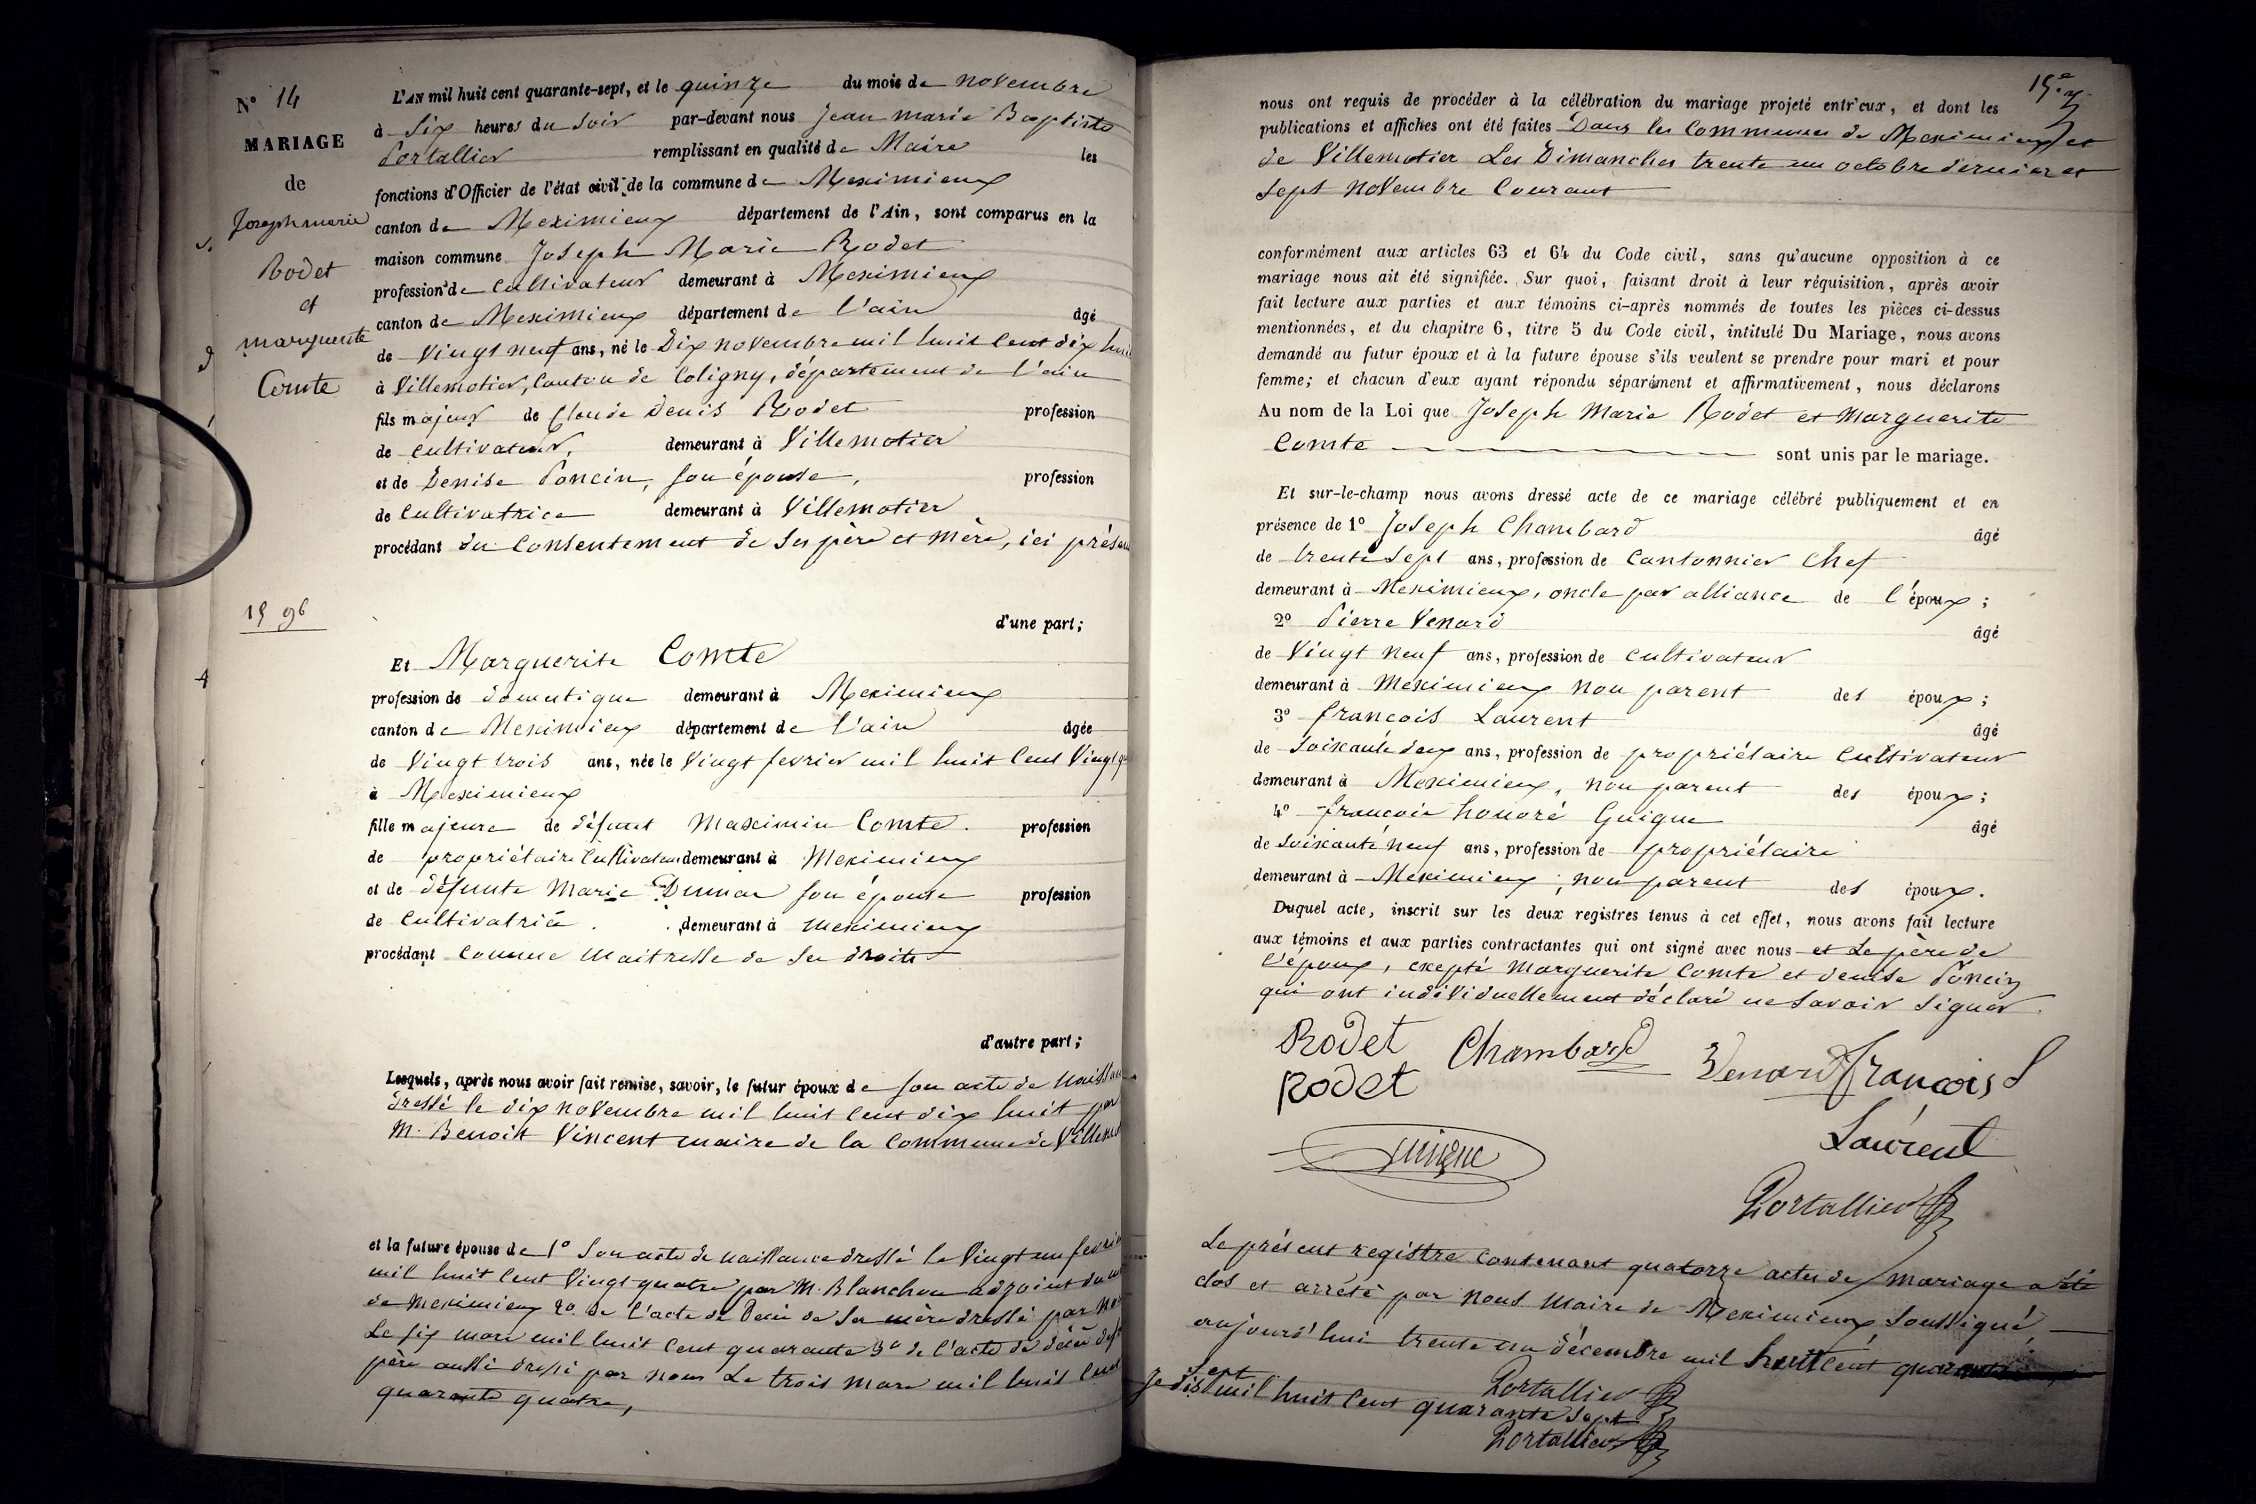 N° 14
MARIAGE
de
Joseph marie
Rodet
et
marguerite
Comte
15 96
L'AN mil huit cent quarante-sept, et le quinze du mois de novembre
à Six heures du Soir par-devant nous Jean marie Baptiste
Portallier remplissant en qualité de Maire les
fonctions d'Officier de l'état civil de la commune de Meximieux
canton de Meximieux département de l'Ain, sont comparus en la
maison commune Joseph Marie Rodet
profession de Cultivateur demeurant à Meximieux
canton de Meximieux département de l'ain âgé
de Vingt neuf ans, né le Dix novembre mil huit Cent dix huit
à Villemotier, Canton de Coligny, département de l'ain
fils majeur de Claude Denis Rodet profession
de cultivateur, demeurant à Villemotier
et de Denise Poncin, son épouse, profession
de Cultivatrice demeurant à Villemotier
procédant du Consentement de Ses père et mère, ici
d'une part;
Et Marguerite Comte
profession de domestique demeurant à Meximieux
canton de Meximieux département de l'ain âgée
de Vingt trois ans, née le Vingt fevrier mil huit Cent Vingt
à Meximieux
fille majeure de défunt Maximin Comte. profession
de propriétaire Cultivateur demeurant à Meximieux
et de défunte Marie son épouse profession
de Cultivatrice. demeurant à meximieux
procédant Comme Maitresse de Ses droits
d'autre part;
Lesquels, après nous avoir fait remise, savoir, le futur époux de son acte de
dressé le dix novembre mil huit Cent dix huit par
M. Benoit Vincent maire de la Commune de
et la future épouse de 1° Son acte de naissance dressé le Vingt un
mil huit Cent Vingt quatre par M. Blanchon adjoint
de meximieux 2° de l'acte de Décès de Sa mère dressé par
Le six mars mil huit Cent quarante 3° de l'acte de décès
père aussi dressé par nous Le trois mars mil huit Cent
quarante quatre,
15.e
nous ont requis de procéder à la célébration du mariage projeté entr'eux, et dont les
publications et affiches ont été faites Dans les Communes de Meximieux et
de Villemotier Les Dimanches trente un octobre dernier et
Sept novembre Courant
conformément aux articles 63 et 64 du Code civil, sans qu'aucune opposition à ce
mariage nous ait été signifiée. Sur quoi, faisant droit à leur réquisition, après avoir
fait lecture aux parties et aux témoins ci-après nommés de toutes les pièces ci-dessus
mentionnées, et du chapitre 6, titre 5 du Code civil, intitulé Du Mariage, nous avons
demandé au futur époux et à la future épouse s'ils veulent se prendre pour mari et pour
femme; et chacun d'eux ayant répondu séparément et affirmativement, nous déclarons
Au nom de la Loi que Joseph Marie Rodet et Marguerite
Comte sont unis par le mariage.
Et sur-le-champ nous avons dressé acte de ce mariage célébré publiquement et en
présence de 1° Joseph Chambard âgé
de trente Sept ans, profession de Cantonnier Chef
demeurant à Meximieux, oncle par alliance de l'époux;
2° Pierre Venard âgé
de Vingt neuf ans, profession de Cultivateur
demeurant à Meximieux non parent des époux;
3° françois Laurent âgé
de Soixante deux ans, profession de propriétaire Cultivateur
demeurant à Meximieux, non parent des époux;
4° françois honoré Guigue âgé
de Soixante neuf ans, profession de propriétaire
demeurant à Meximieux, non parent des époux.
Duquel acte, inscrit sur les deux registres tenus à cet effet, nous avons fait lecture
aux témoins et aux parties contractantes qui ont signé avec nous et Le père de
l'époux, excepté Marguerite Comte et denise Poncin
qui ont individuellement déclaré ne Savoir Signer.
Rodet Chambard Venard françois
Rodet
Laurent
Guigue
Portallier
Le présent registre Contenant quatorze actes de mariage a été
clos et arrété par nous Maire de Meximieux Soussigné,
aujourd'hui trente un décembre mil huit Cent
Sept
Je dis mil huit Cent quarante Sept
Portallier
Portallier